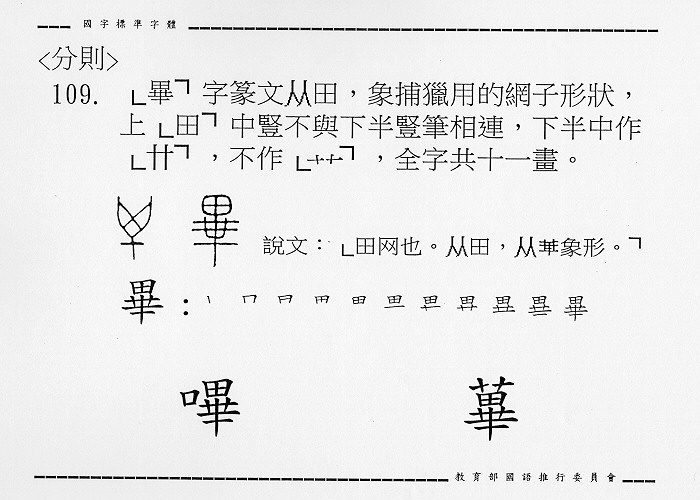 國字標準字體
<分則>
109. 「畢」字篆文从田，象捕獵用的網子形狀，
上「田」中豎不與下半豎筆相連，下半中作
「卄」，不作「艹」，全字共十一畫。
說文：「田网也。从田，从華象形。」
畢：
嗶 蓽
教育部國語推行委員會